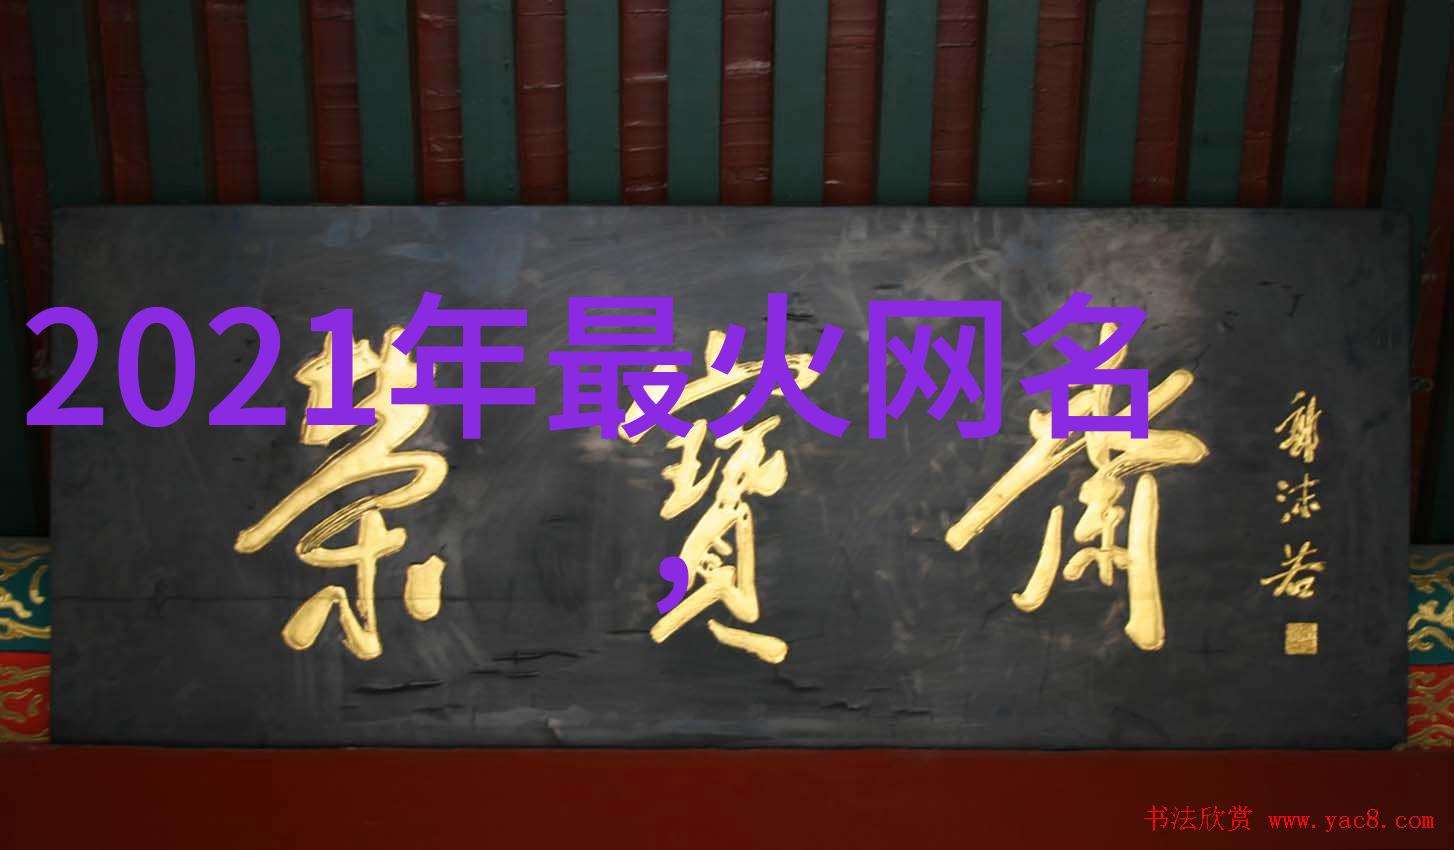 2021年最火网名
，
榮寶齋
郭沫若
书法欣赏 www.yac8.com